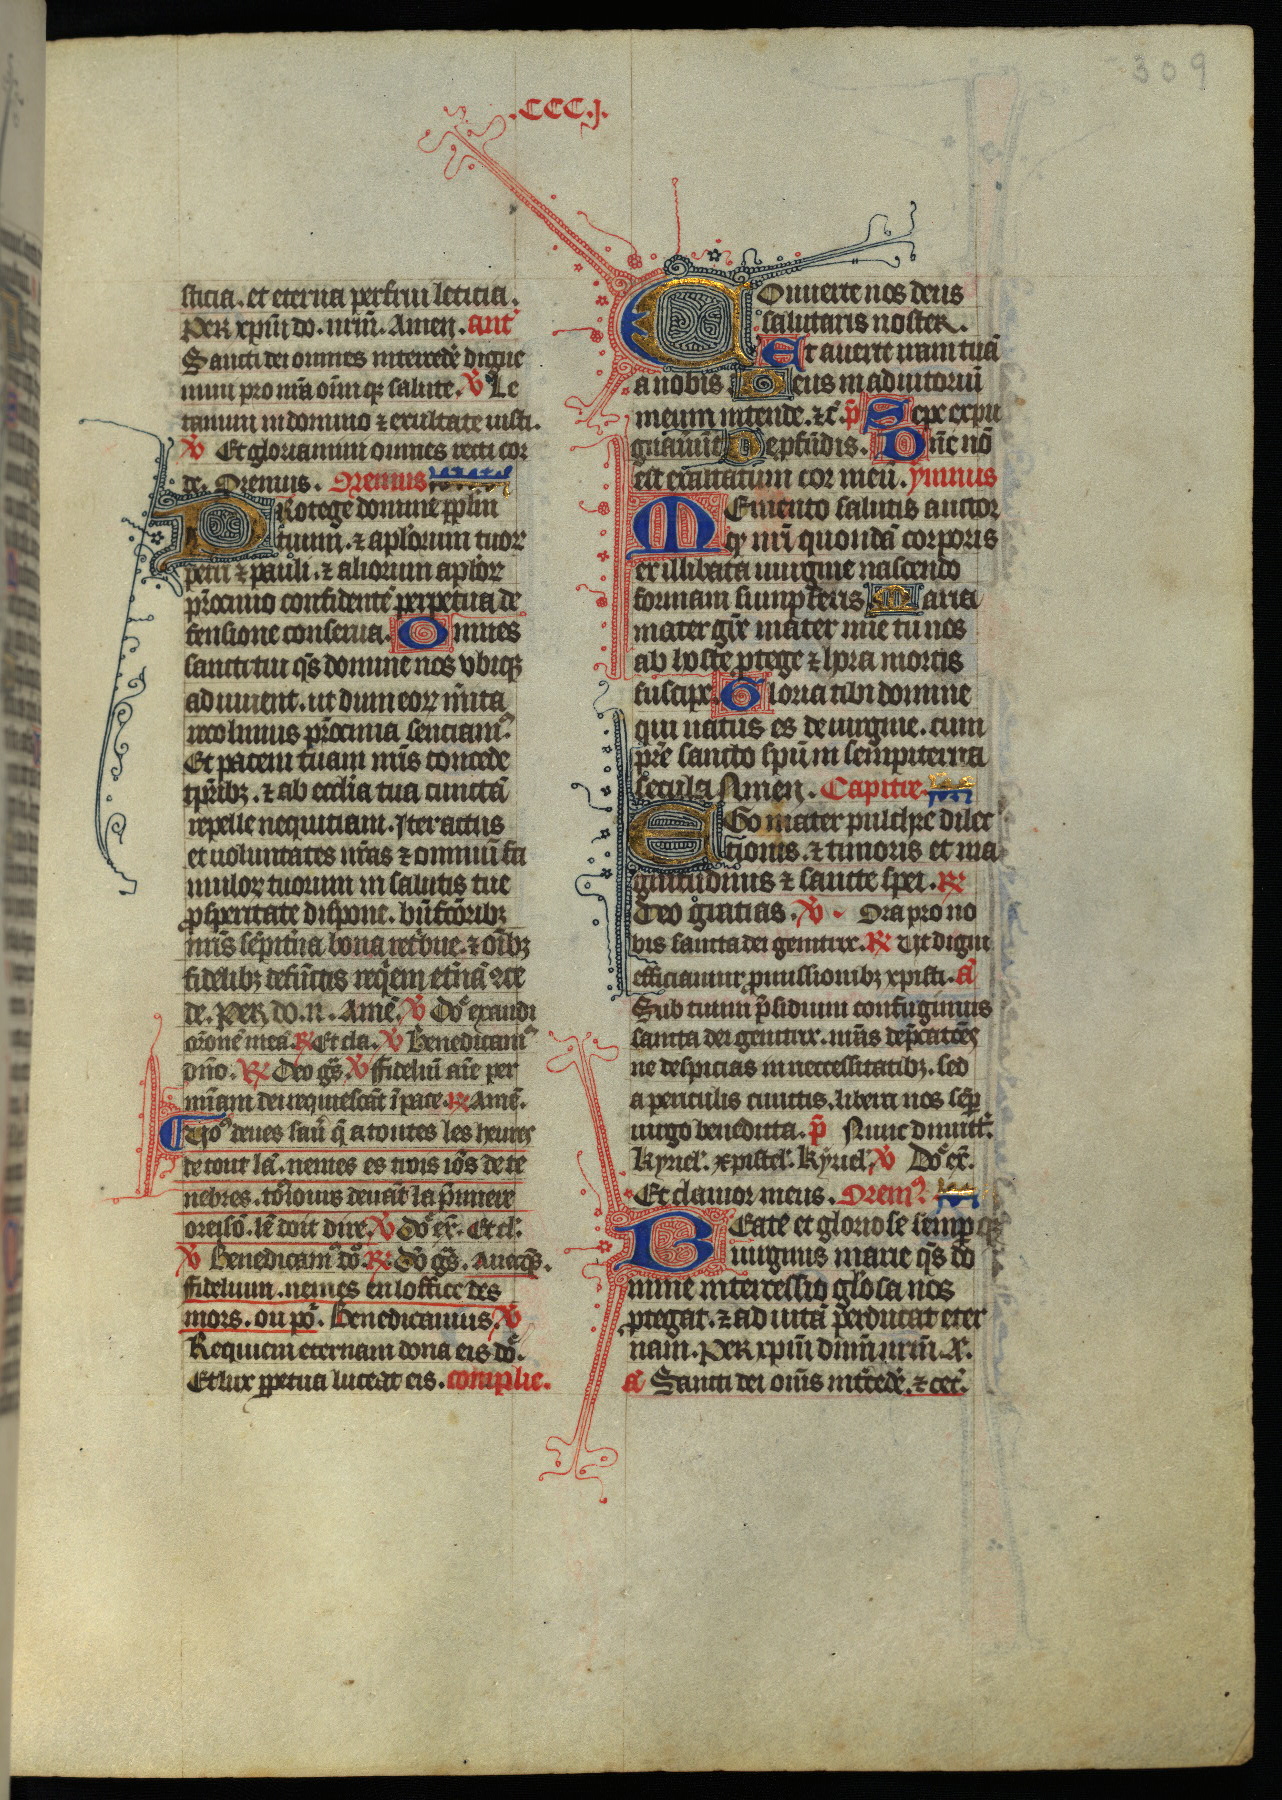 309
.CCC.j.
sticia. et eterna perfrui leticia.
Per xp̄m do. nr̄m. Amen. ant'
Sancti dei omnes intercedē digne
mini pro nr̄a om̄iqȝ salute. ℣ Le
tamini in domino ⁊ exultate iusti.
℣ Et gloriamini omnes recti cor
de. Oremus. Oremus
Rotege domine pp̄lm
tuum. ⁊ apl'orum tuoꝝ
petri ⁊ pauli. ⁊ aliorum apl'oꝝ
pr̄ocinio confidentē perpetua de
fensione conserua. Omnes
sancti tui qs̄ domine nos vbiqȝ
adiuuent. ut dum eoꝝ m̄ita
recolimus pr̄ocinia senciam'
Et pacem tuam nr̄is concede
tp̄ribȝ. ⁊ ab ecclīa tua cunctā
repelle nequitiam. Iter actus
et uoluntates nr̄as ⁊ omniū fa
muloꝝ tuorum in salutis tue
ꝓsperitate dispone. bn̄fcōribȝ
nr̄is sēpitn̄a bona ret'bue. ⁊ oībȝ
fidelibȝ defūctis reqⁱem et̄nā ꝯce
de. Per do. n. Amē. ℣ Do' exaudi
or̄onē meā. ℟ Et cla. ℣ Benedicam'
dn̄o. ℟ Deo gr̄s. ℣ Fideliū aīe per
mīam dei requiescāt ī pace. ℟ Amē.
de tour lā. nemes es trois io's de te
nebres. to'iours deuāt la p̄miere
oreisō. lē doit dire. ℣ Do' ex̄. Et cl'.
℣ Benedicam' do'. ℟ Do' gr̄s.
fidelium. nemes en loffice des
mors. ou po'. Benedicamus. ℣
Requiem eternam dona eis do'.
Et lux ꝑpetua luceat eis. complie.
Conuerte nos deus
salutaris noster.
Et auerte iram tuā
a nobis. Deus in adiutoriū
meum intende. ⁊c̄. p̄ Sepe expu
gnauer̄t De ꝓfūdis. Dn̄e nō
est exaltatum cor meū. ymnus
Memento salutis auctor
qȝ nr̄i quondā corporis
ex illibata uirgine nascendo
formam sumpseris Maria
mater gr̄e mater mīe tu nos
ab hoste ꝓtege ⁊ hora mortis
suscipe. Gloria tibi domine
qui natus es de uirgine. cum
pr̄e sancto spū in sempiterna
secula Amen. Capitre.
Ego mater pulchre dilec
tionis. ⁊ timoris et ma
gnitudinis ⁊ sancte spei. ℟
Deo gratias. ℣. Ora pro no
bis sancta dei genitrix. ℟ Ut digni
efficiamur ꝓmissionibȝ xpisti. a'
Sub tuum p̄sidium confugimus
sancta dei genitrix. nr̄as dep̄catōēs
ne despicias in necessitatibȝ. sed
a periculis cunctis. libera nos sēꝑ
uirgo benedicta. p̄ Nunc dimitt'.
Kyriel'. xpistel'. Kyriel'. ℣ Do' ex̄.
Et clamor meus. Orem'.
Beate et gloriose sēmpqȝ
uirginis marie qs̄ do
mine intercessio glosa nos
ꝓtegat. ⁊ ad uitā ꝑducat eter
nam. Per xp̄m dīnm nr̄m. A'.
a' Sancti dei om̄s int'cedē. ⁊ cet'.